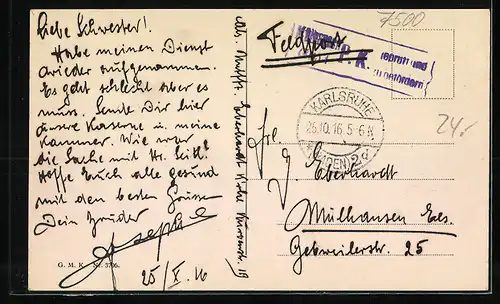 Liebe Schwester!
Habe meinen Dienst
wieder aufgenommen.
Es geht schlecht aber es
muss. Sende Dir hier
unsere Kaserne u. meine
Kammer. Wie war
die Sache mit Hr.
Hoffe Euch alle gesund
mit den besten Grüssen
Dein Bruder
Joseph
25/X. 16
G. M. K. Nr. 3706.
Abs. Eberhardt Karlsr. 19
7500
Feldpost
P. K.
zu befördern
KARLSRUHE
25.10.16.5-6N
(BADEN) 2
24,-
Frl.
Eberhardt
Mülhausen Els.
Gebweilerstr. 25